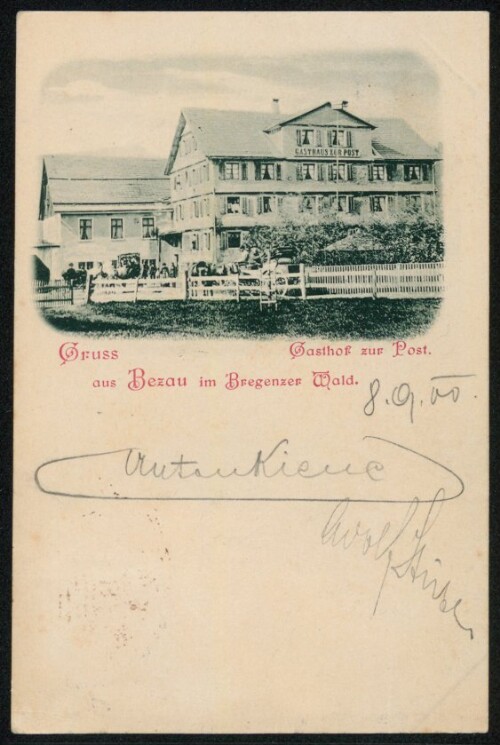 GASTHAUS ZUR POST.
Gruss Gasthof zur Post.
aus Bezau im Bregenzer Wald.
8.9.00.
Anton Kiene
Adolf